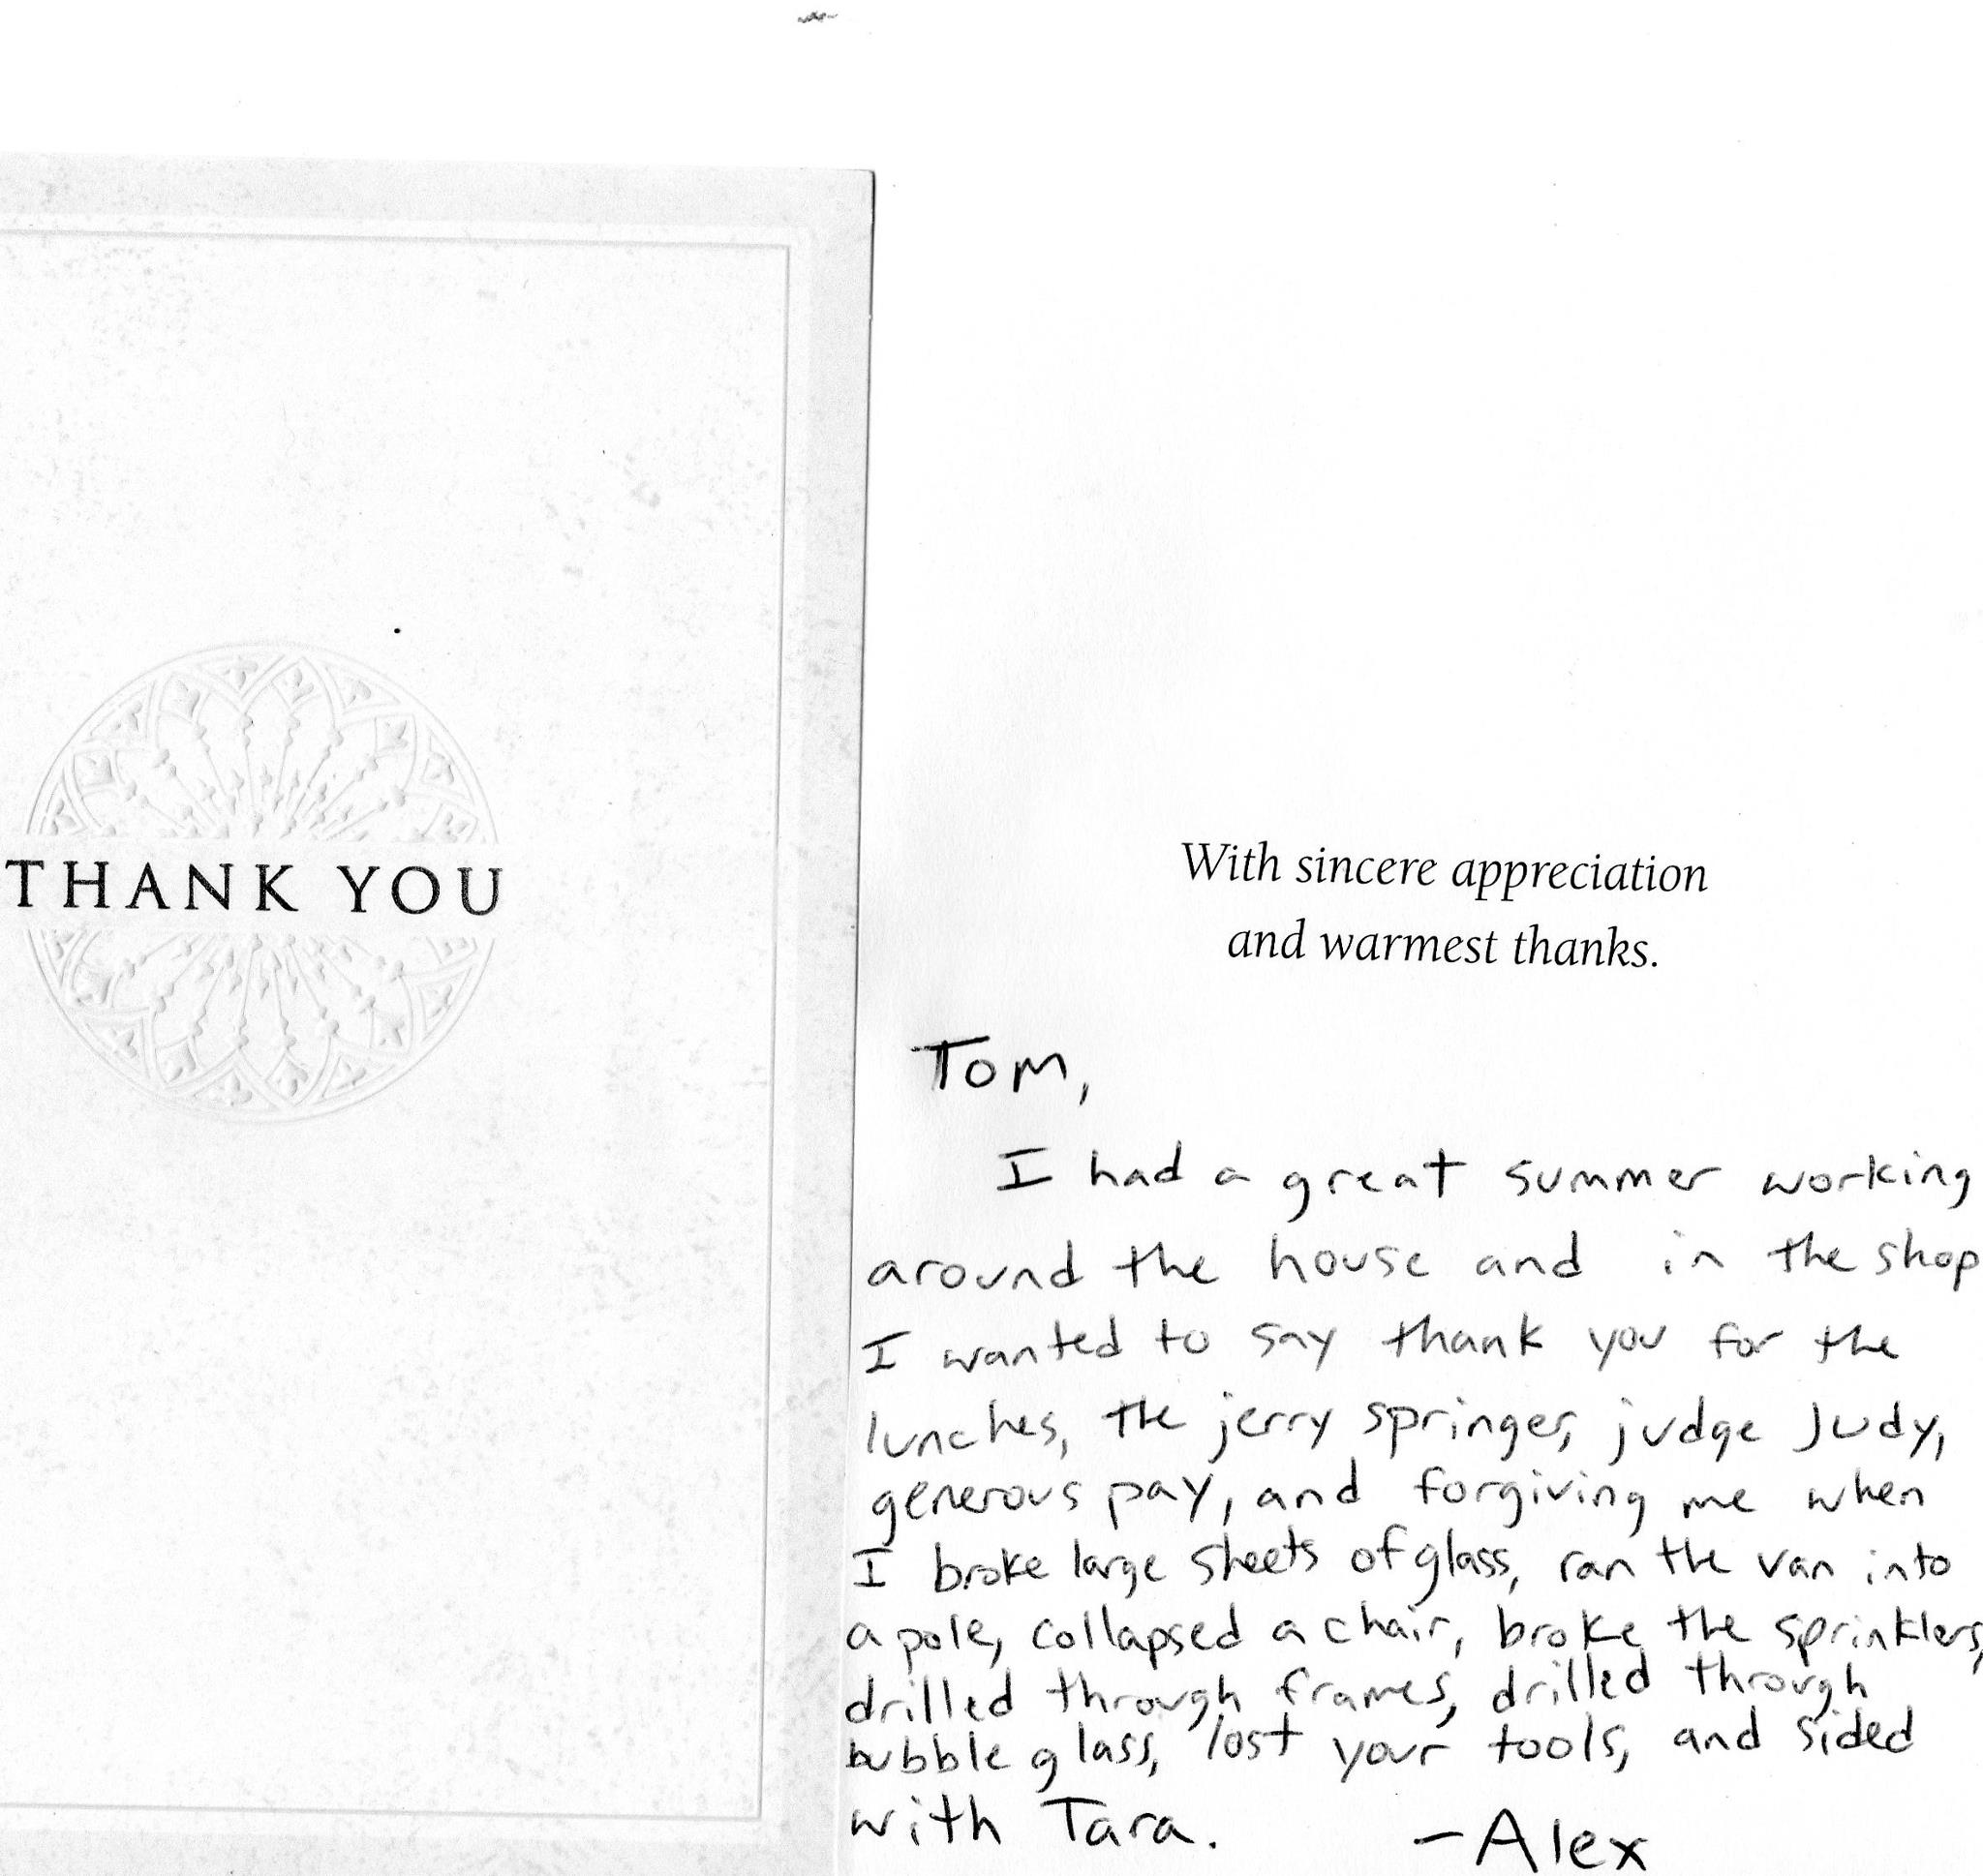 THANK YOU
With sincere appreciation
and warmest thanks.
Tom,
I had a great summer working
around the house and in the shop
I wanted to say thank you for the
lunches, the jerry springer, judge Judy,
generous pay, and forgiving me when
I broke large sheets of glass, ran the van into
a pole, collapsed a chair, broke the sprinklers,
drilled through frames, drilled through
bubble glass, lost your tools, and sided
with Tara.
-Alex